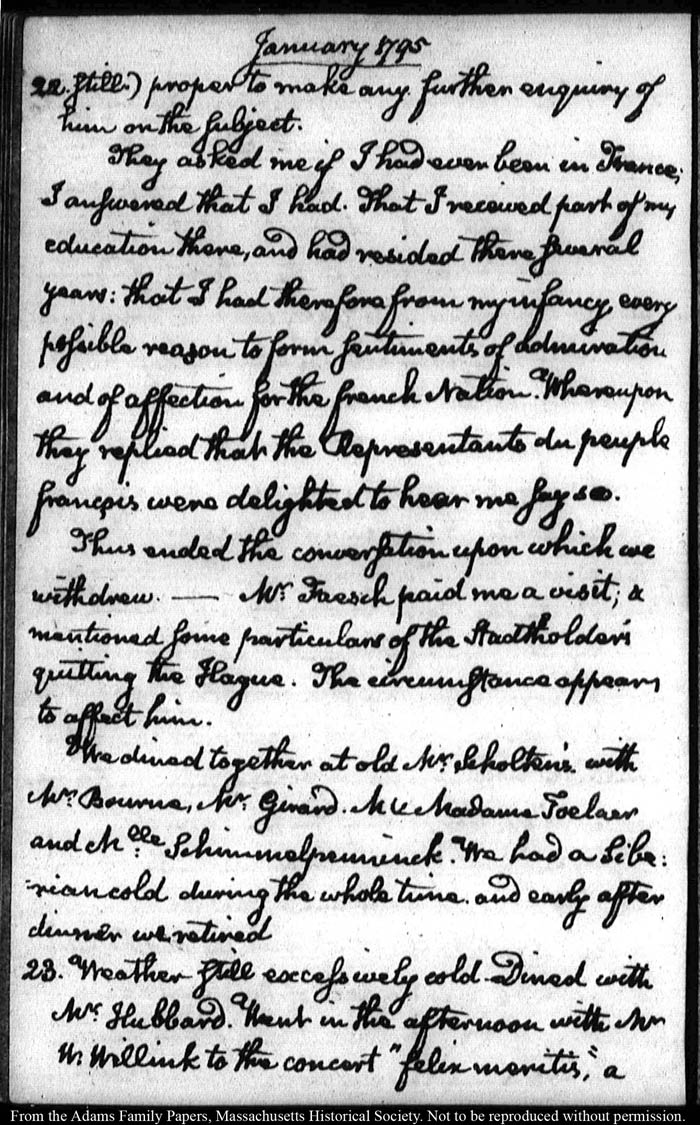 January 1795
22. still.) proper to make any further enquiry of
him on the subject.
They asked me if I had ever been in France;
I answered that I had. That I received part of my
education there, and had resided there several
years: that I had therefore from my infancy every
possible reason to form sentiments of admiration
and of affection for the french Nation. Whereupon
they replied that the Representants du peuple
françois were delighted to hear me say so.
Thus ended the conversation upon which we
withdrew. — Mr. Faesch paid me a visit; &
mentioned some particulars of the Stadtholder's
quitting the Hague. The circumstance appears
to affect him.
We dined together at old Mr. Scholten's. with
Mr. Bourne, Mr. Girard. M & Madame Toelaer
and M.lle Schimmelpenninck. We had a Sibe:
-rian cold during the whole time. and early after
dinner we retired
23. Weather still excessively cold. Dined with
Mr. Hubbard. Went in the afternoon with Mr
W. Willink to the concert "felix meritis," a
From the Adams Family Papers, Massachusetts Historical Society. Not to be reproduced without permission.